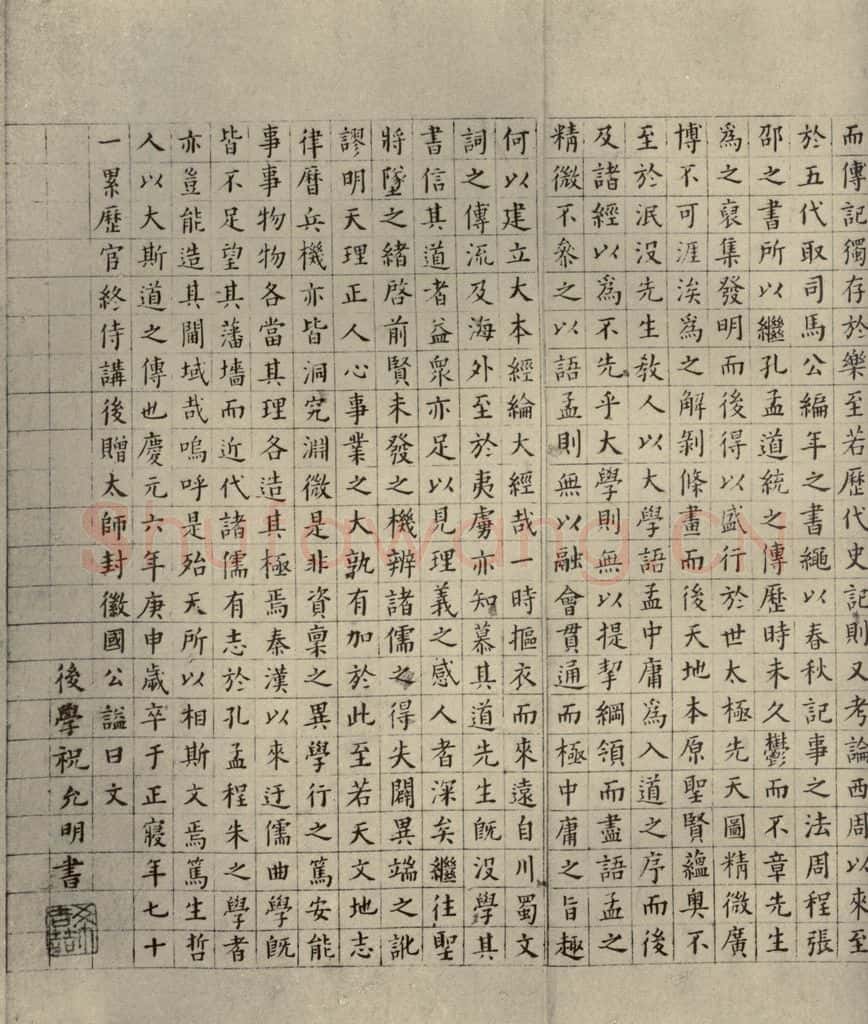 而傳記獨存於樂至若歷代史記則又考論西周以來至
於五代取司馬公編年之書繩以春秋記事之法周程張
邵之書所以繼孔孟道統之傳歷時未久鬱而不章先生
為之裒集發明而後得以盛行於世太極先天圖精微廣
博不可涯涘為之解剝條畫而後天地本原聖賢蘊奧不
至於泯沒先生教人以大學語孟中庸為入道之序而後
及諸經以為不先乎大學則無以提挈綱領而盡語孟之
精微不叅之以語孟則無以融會貫通而極中庸之旨趣
何以建立大本經綸大經哉一時摳衣而來遠自川蜀文
詞之傳流及海外至於夷虜亦知慕其道先生既沒學其
書信其道者益眾亦足以見理義之感人者深矣繼往聖
將墜之緒啓前賢未發之機辨諸儒之得失闢異端之訛
謬明天理正人心事業之大孰有加於此至若天文地志
律曆兵機亦皆洞究淵微是非資稟之異學行之篤安能
事事物物各當其理各造其極焉秦漢以來迂儒曲學既
皆不足望其藩墻而近代諸儒有志於孔孟程朱之學者
亦豈能造其閫域哉嗚呼是殆天所以相斯文焉篤生哲
人以大斯道之傳也慶元六年庚申歲卒于正寢年七十
一累歷官終侍講後贈太師封徽國公謚曰文
後學祝允明書
shufawang.cn